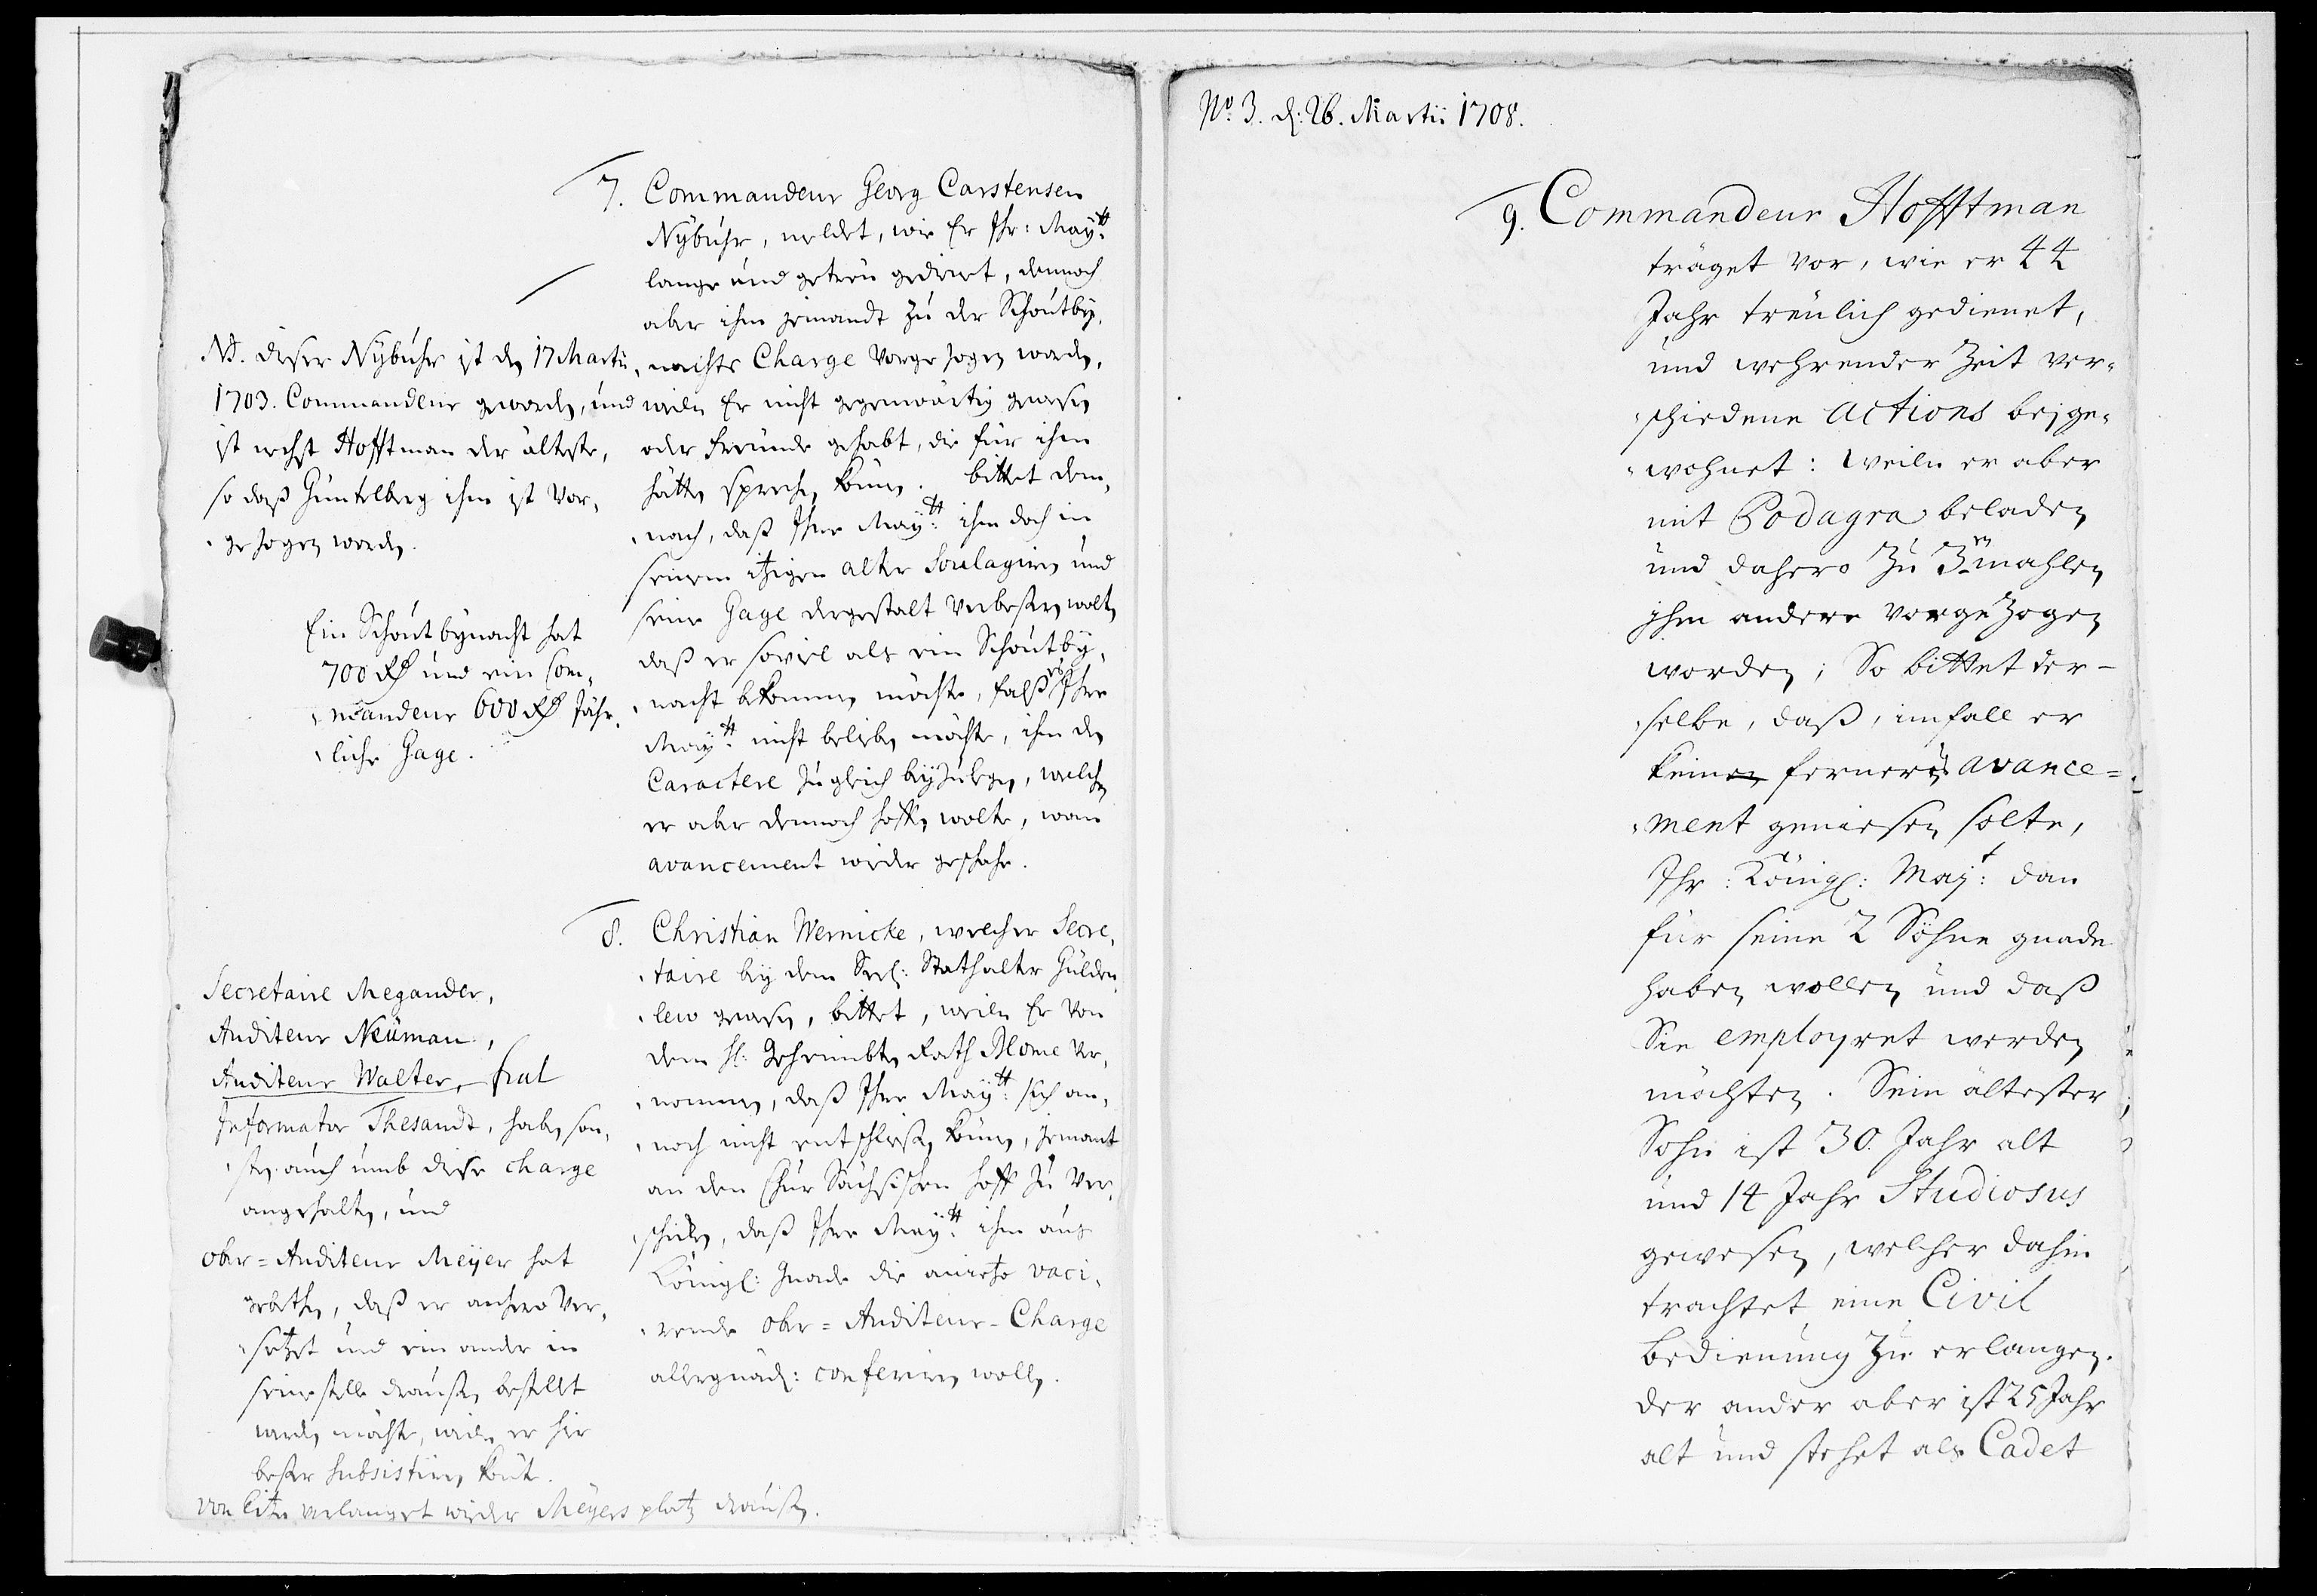 7. Commandeur Georg Carstensen
Nÿbuhr, meldet, wie Er Ihr: Maÿtt:
lange und getreu gedienet, dennoch
aber ihm jemandt zu der Schoutbÿ,
nachts Charge vorgezogen worden,
weiln Er nicht gegenwärtig gewesen
oder freunde gehabt, die für ihm
hätten sprechen können. bittet dem,
nach, daß Ihre Maÿtt: ihm doch in
seinem itzigen alter Soulagiren und
seine Gage dergestalt verbeßern wolten
daß er soviel als ein Schoutbÿ,
nacht bekommen möchte, falß es Ihre
Maÿtt: nicht belieben möchte, ihm den
Caractere zugleich beÿzulegen, welchen
er aber dennoch hoffen wolte, wan
avancement wieder geschehe.
NB. dieser Nÿbuhr ist den 17 Martii
1703. Commandeur geworden, und
ist nechst Hofftman der älteste,
so daß Güntelberg ihm ist vor,
gezogen worden.
Ein Schoutbÿnacht hat
700 Rd und ein Com,
mandeur 600 Rd Jähr,
liche Gage.
8. Christian Wernicke, welcher Secre,
taire beÿ dem Seel: Stathalter Gülden,
lew gewesen, bittet, weiln Er von
dem H: Geheimbten Rath Blome ver,
nommen, daß Ihre Maÿtt: sich an,
noch nicht entschließen können, jemant
an den Chur Sächsischen Hoff zu ver,
schicken, daß Ihre Maÿtt: ihm aus
Königl: Gnade die anietzo vaci,
rende ober=Auditeur-Charge
allergnäd: conferiren wollen.
Secretaire Megander,
Auditeur Neuman,
Auditeur Walter,
Informator Thesandt, haben son,
sten auch umb diese charge
angehalten, und
ober=Auditeur Meÿer hat
gebethen, daß er anhero ver,
setzet und ein ander in
seine stelle draußen bestellt
werden möchte, weiln er hier
beßer subsistiren könte.
verlanget wieder Meÿers platz draußen.
No. 3. d: 26. Martii 1708.
9. Commandeur Hofftman
träget vor, wie er 44
Jahr treulich gedienet,
und wehrender Zeit ver,
schiedene actions beÿge,
wohnet: weiln er aber
mit Podagra beladen
und dahero zu 3en mahlen
ihm andere vorgezogen
worden; So bittet der-
selbe, daß, imfall er
kein ferneres avance=
ment geniesen solte,
Ihr: Königl: Maÿt: dan
für seine 2 Söhne gnade
haben wollen und daß
Sie employret werden
möchten. Sein ältester
Sohn ist 30. Jahr alt
und 14 Jahr Studiosus
gewesen, welcher dahin
trachtet eine Civil
bedienung zu erlangen.
der ander aber ist 25 Jahr
alt und stehet als Cadet